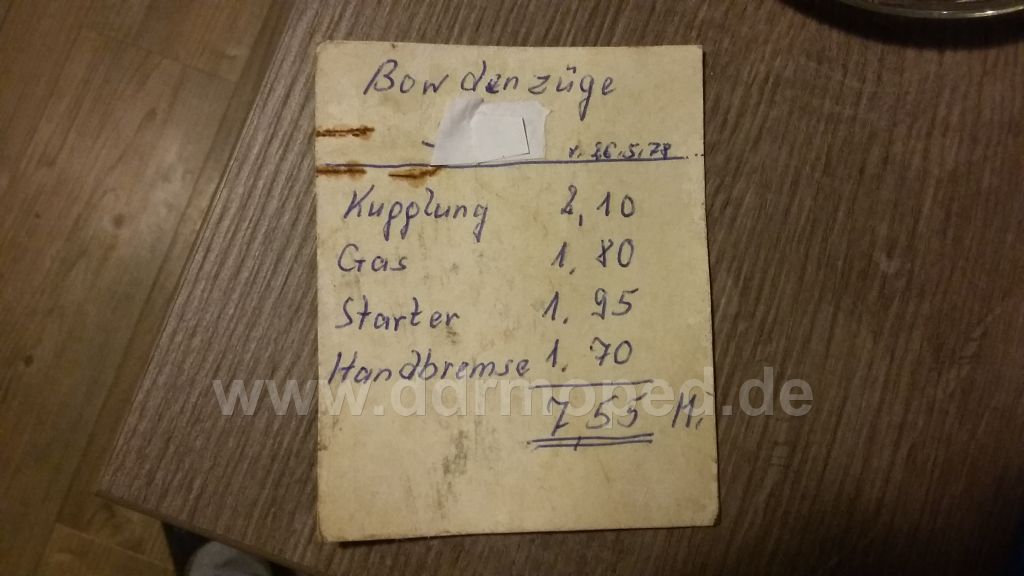 Bowdenzüge
v. 26.5.78
Kupplung 2,10
Gas 1,80
Starter 1,95
Handbremse 1,70
7,55 M.
www.ddrmoped.de